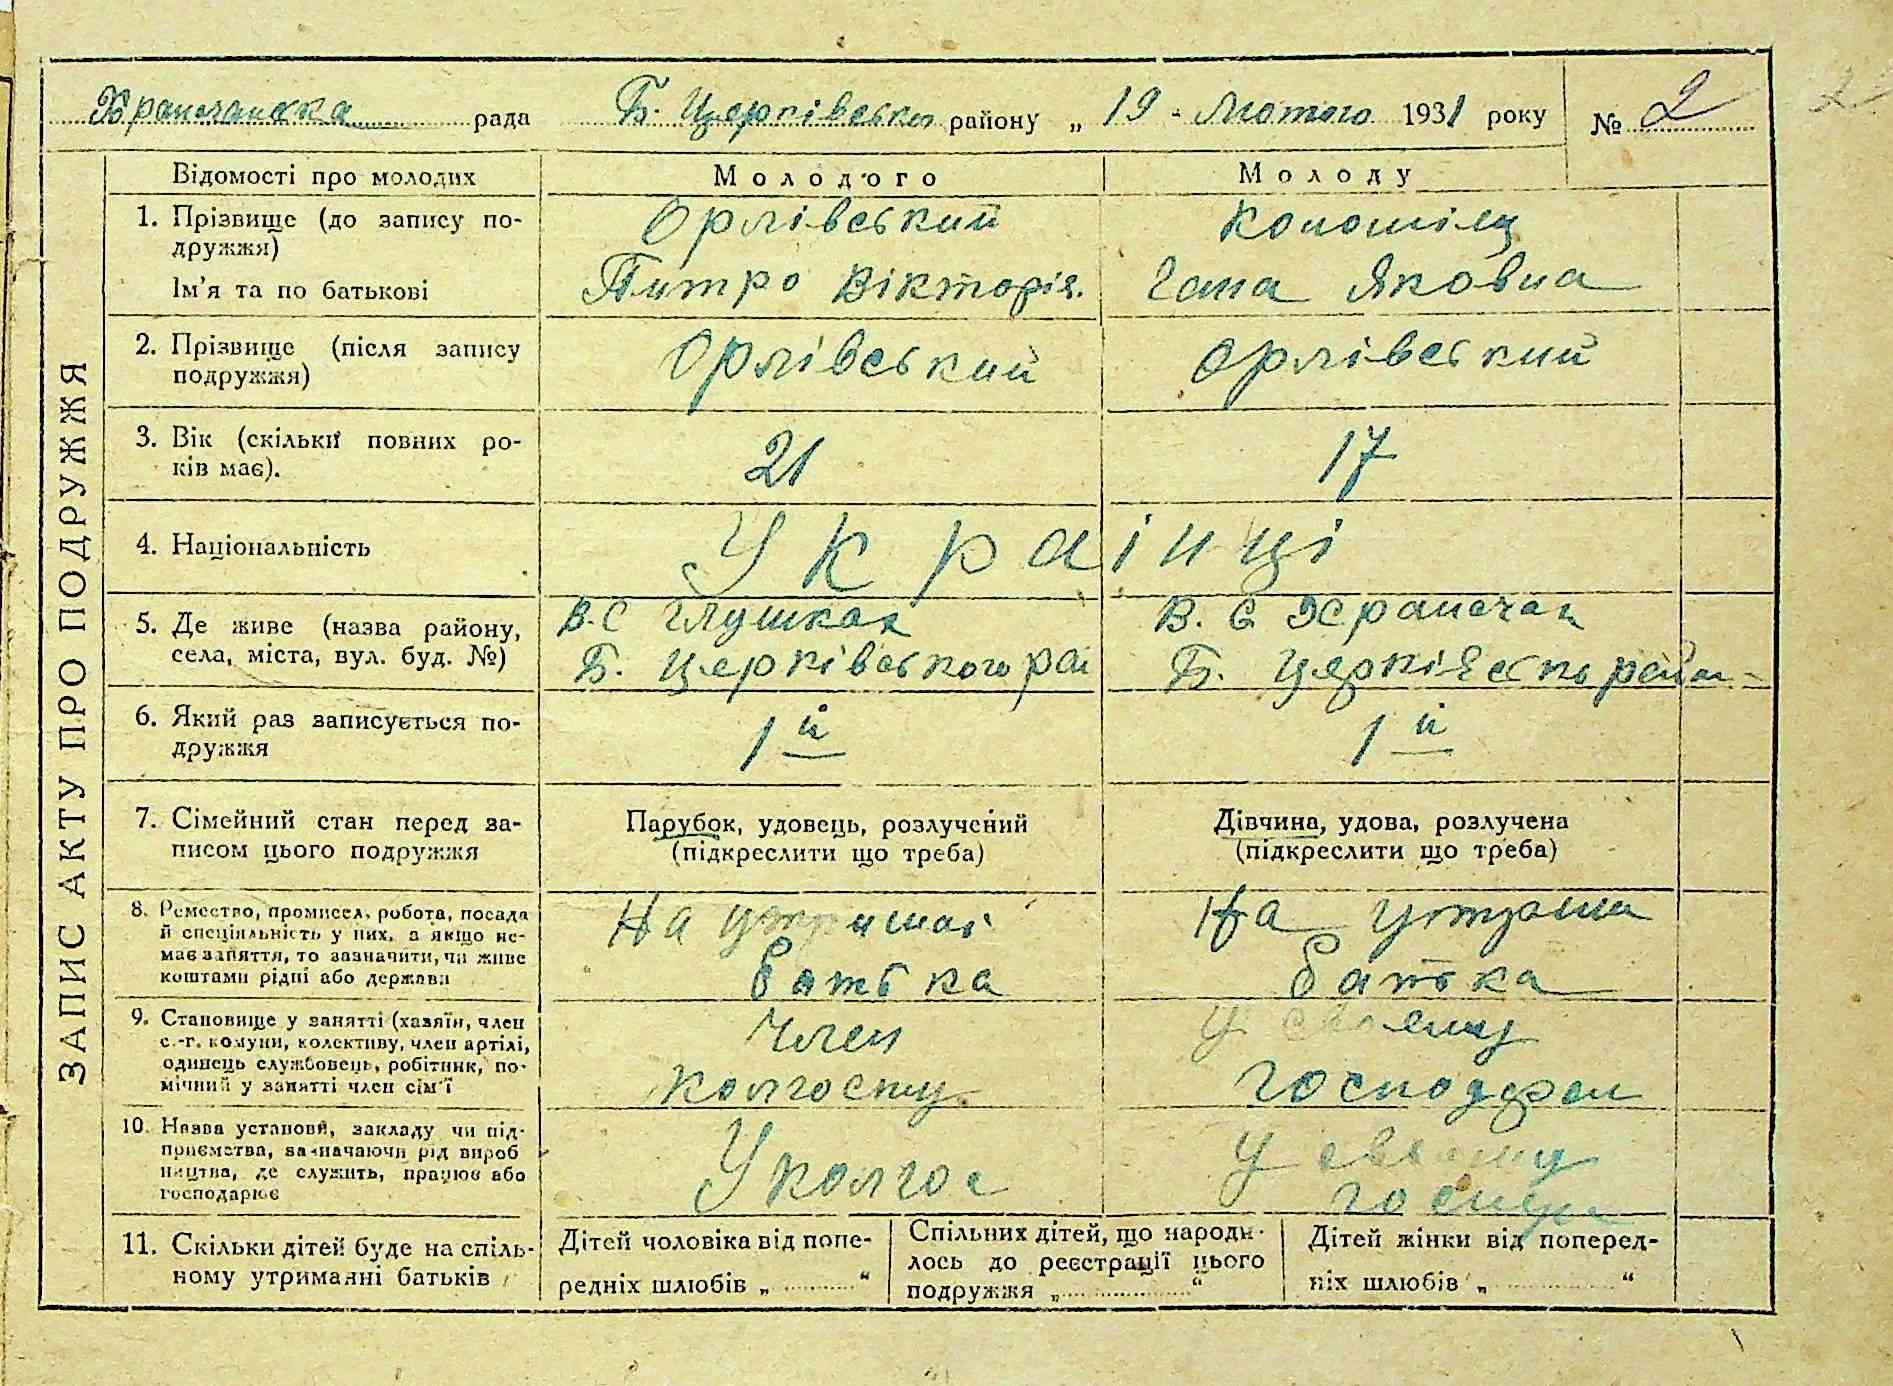 Храпачанска рада Б. Церківськ району „ 19 - Лютого 1931 року № 2
ЗАПИС АКТУ ПРО ПОДРУЖЖЯ
Відомості про молодих Молодого Молоду
1. Прізвище (до запису по- Орлівський Коломієц
дружжя)
Ім'я та по батькові Питро Вікторів. Гана Яковна
2. Прізвище (після запису Орлівський Орлівський
подружжя)
3. Вік (скільки повних ро- 21 17
ків має).
4. Національність Українці
5. Де живе (назва району, В.С Глушках В. С Храпачах
села, міста, вул. буд. №) Б. Церківського рай Б. Церківсько район
6. Який раз записується по- 1й 1й
дружжя
7. Сімейний стан перед за- Парубок, удовець, розлучений Дівчина, удова, розлучена
писом цього подружжя (підкреслити що треба) (підкреслити що треба)
8. Ремество, промисел, робота, посада На утримані На утрима
й спеціяльність у них, а якщо не-
має заняття, то зазначити, чи живе Батька Батька
коштами рідні або держави
9. Становище у занятті (хазяїн, член Член У своєму
с.-г. комуни, колективу, член артілі,
одинець службовець, робітник, по- колгоспу. господрст
мічний у занятті член сім'ї
10. Назва установи, закладу чи під- У колгос У своєму
приємства, зазначаючи рід вироб
ництва, де служить, працює або госпдр
господарює
11. Скільки дітей буде на спіль- Дітей чоловіка від попе- Спільних дітей, що народи- Дітей жінки від поперед-
ному утриманні батьків редніх шлюбів „ “ лось до реєстрації цього ніх шлюбів „ “
подружжя „ “